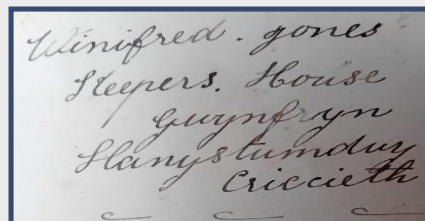 Winifred. Jones
Keepers. House
Gwynfryn
Llanystumdwy
Criccieth